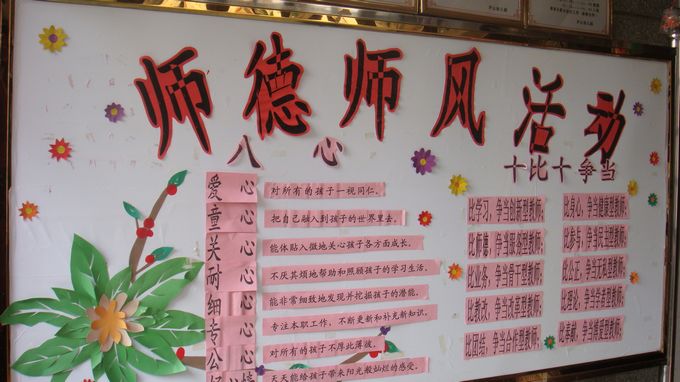 师德师风活动
八心
十比十争当
爱心 对所有的孩子一视同仁。
童心 把自己融入到孩子的世界里去。
关心 能体贴入微地关心孩子各方面成长。
耐心 不厌其烦地帮助和照顾孩子的学习生活。
细心 能非常细致地发现并挖掘孩子的潜能。
专心 专注本职工作，不断更新和补充新知识。
公心 对所有的孩子不厚此薄彼。
天天能给孩子带来阳光般灿烂的感受。
比学习，争当创新型教师；
比师德，争当
型教师；
比业务，争当骨干型教师；
比教改，争当改革型教师；
比团结，争当合作型教师；
比身心，争当健康型教师；
比参与，争当
型教师；
比公正，争当
型教师；
比理论，争当
型教师；
比奉献，争当
型教师；